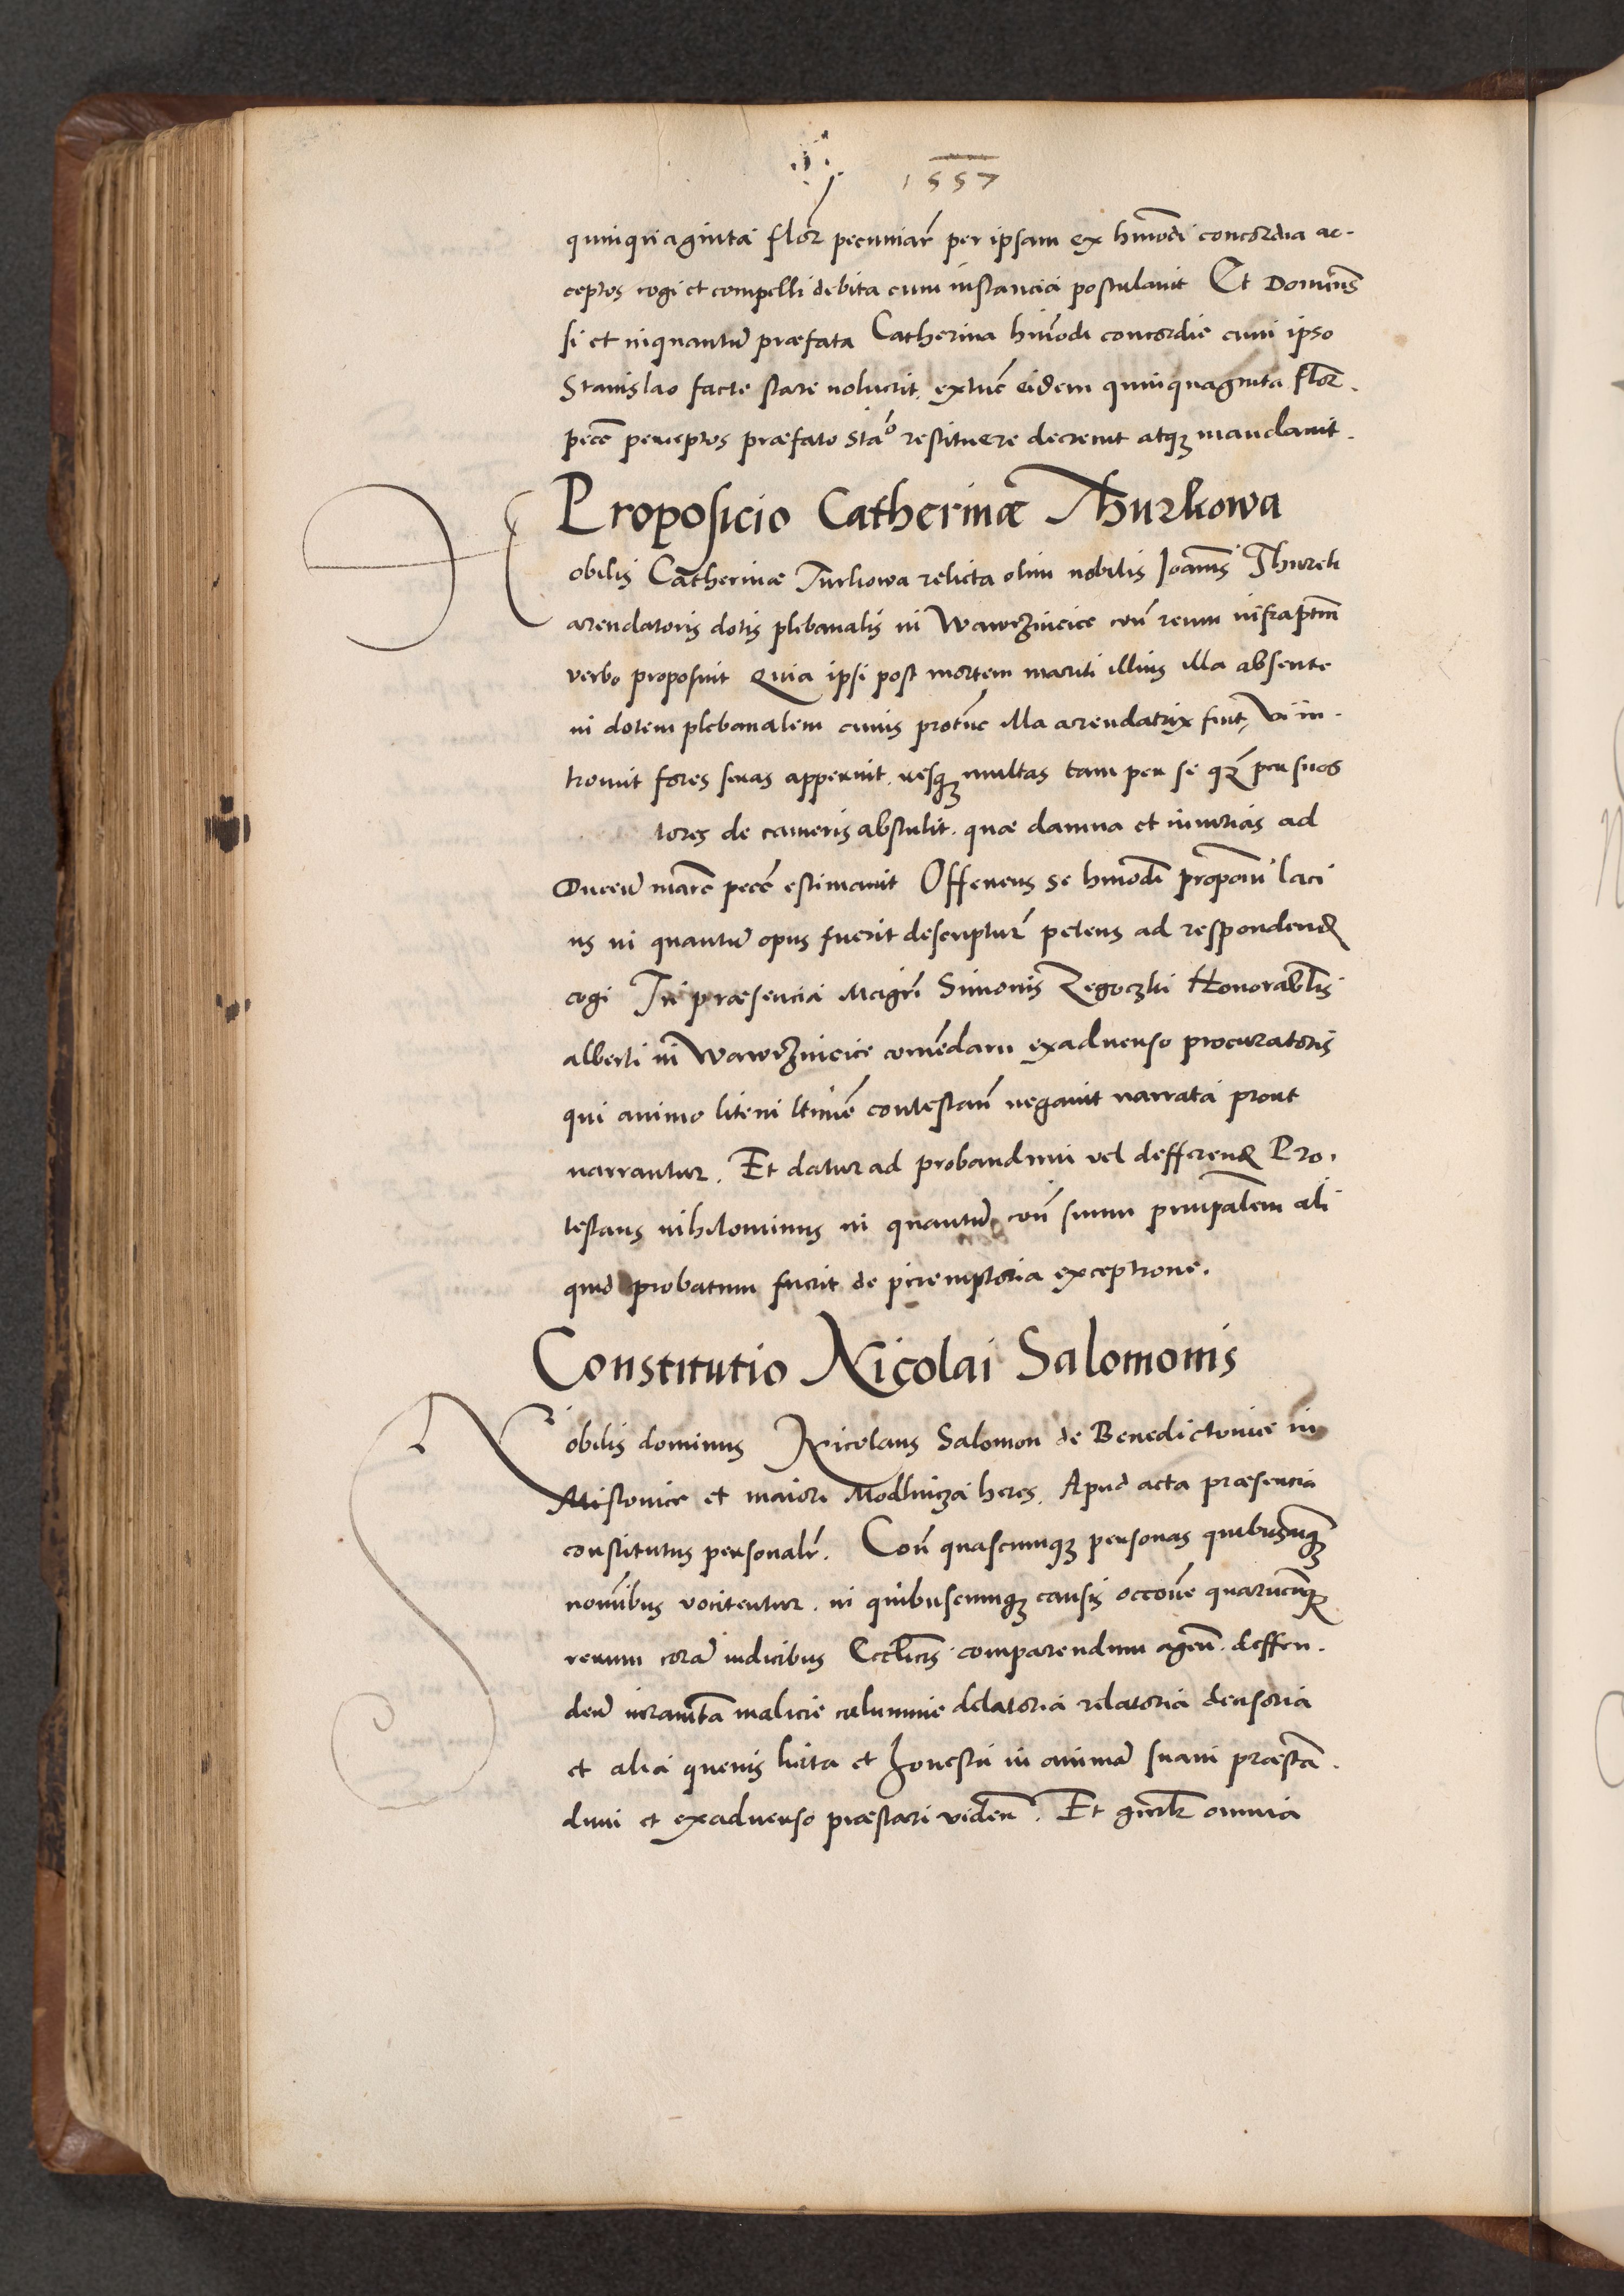 1557
quinquaginta flor pecuniar per ipsam ex hmodi concordia ac-
ceptos cogi et compelli debita cum instancia postulavit Et Dominus
si et inquantu præfata Catherina hmodi concordie cum ipso
Stanislao facte stare noluerit, extunc eidem quinquaginta flor.
pecc perceptos præfato Stao restituere decrevit atq mandavit.
Proposicio Catherinæ Thurkowa
Nobilis Catherinæ Turkowa relicta olim nobilis Joannis Thurek
arendatoris dotis plebanalis in Wawrzincice con reum infraptm
verbo proposuit Quia ipsi post mortem mariti illius illa absente
in dotem plebanalem cuius protunc illa arendatrix fuit, vi in-
trouit fores seras apperuit, resq multas tam per se q per suos
tores de cameris abstulit. quæ damna et iniurias ad
Ducetu marc pecc estimauit Offerens se hmodi proponi laci
us in quantu opus fuerit descriptur petens ad respondend
cogi In præsencia Magri Simonis Zegoczki Honorablis
alberti in Wawrzincice comendarii exaduerso procuratoris
qui animo litem ltime contestan negauit narrata prout
narrantur. Et datur ad probandum vel defferend Pro-
testans nihilominus in quantu con suum principalem ali
quid probatum fuerit de peremptoria exceptione.
Constitutio Nicolai Salomonis
Nobilis dominus Nicolaus Salomon de Benedictouice in
Mistouice et maiori Modlnicza heres, Apud acta præsencia
constitutus personalr. Con quascumq personas quibuscumq
nominibus vocitentur, in quibuscumq causis occone quarucumq
rerum cora iudicibus Ecclicis comparendum agen. deffen-
den iuramta malicie calumnie delatoria relatoria decisoria
et alia quevis licita et honesta in anima suam præsta-
dum et exaduerso præstari viden. Et gnralr omnia